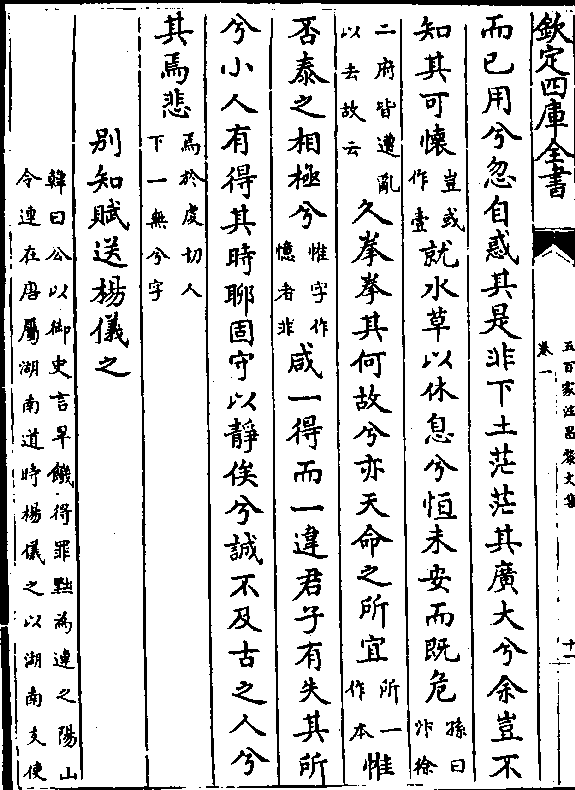 欽定四庫全書
五百家注昌黎文集
卷一
十一
而已用兮忽自惑其是非下土茫茫其廣大兮余豈不
知其可懷豈或作壹就水草以休息兮恒未安而既危孫曰汴徐
二府皆遭亂以去故云久拳拳其何故兮亦天命之所宜所一作本惟
否泰之相極兮惟字作憶者非咸一得而一違君子有失其所
兮小人有得其時聊固守以靜俟兮誠不及古之人兮
其焉悲焉於虔切人下一無兮字
別知賦送楊儀之
韓曰公以御史言旱饑得罪黜為連之陽山
令連在唐屬湖南道時楊儀之以湖南支使